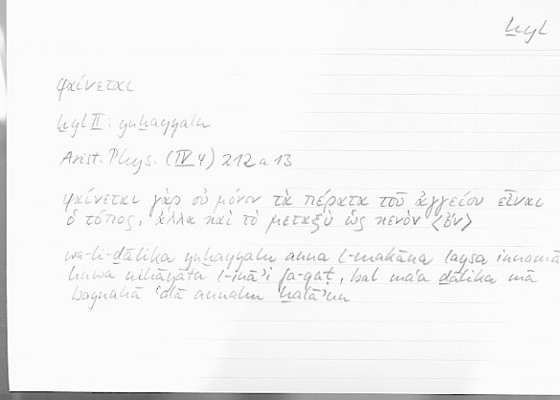 ḫyl
φαίνεται
ḫyl II: yuḫayyalu
Arist. Phys. (IV 4) 212 a 13
φαίνεται γὰρ οὐ μόνον τὰ πέρατα τοῦ ἀγγείου εἶναι
ὁ τόπος, ἀλλὰ καὶ τὸ μεταξὺ ὡς κενὸν <ὄν>
wa-li-ḏālika yuḫayyalu anna l-makāna laysa innamā
huwa nihāyātu l-inā'i fa-qaṭ, bal ma'a ḏālika mā
baynahā 'alā annahu ḫalā'un